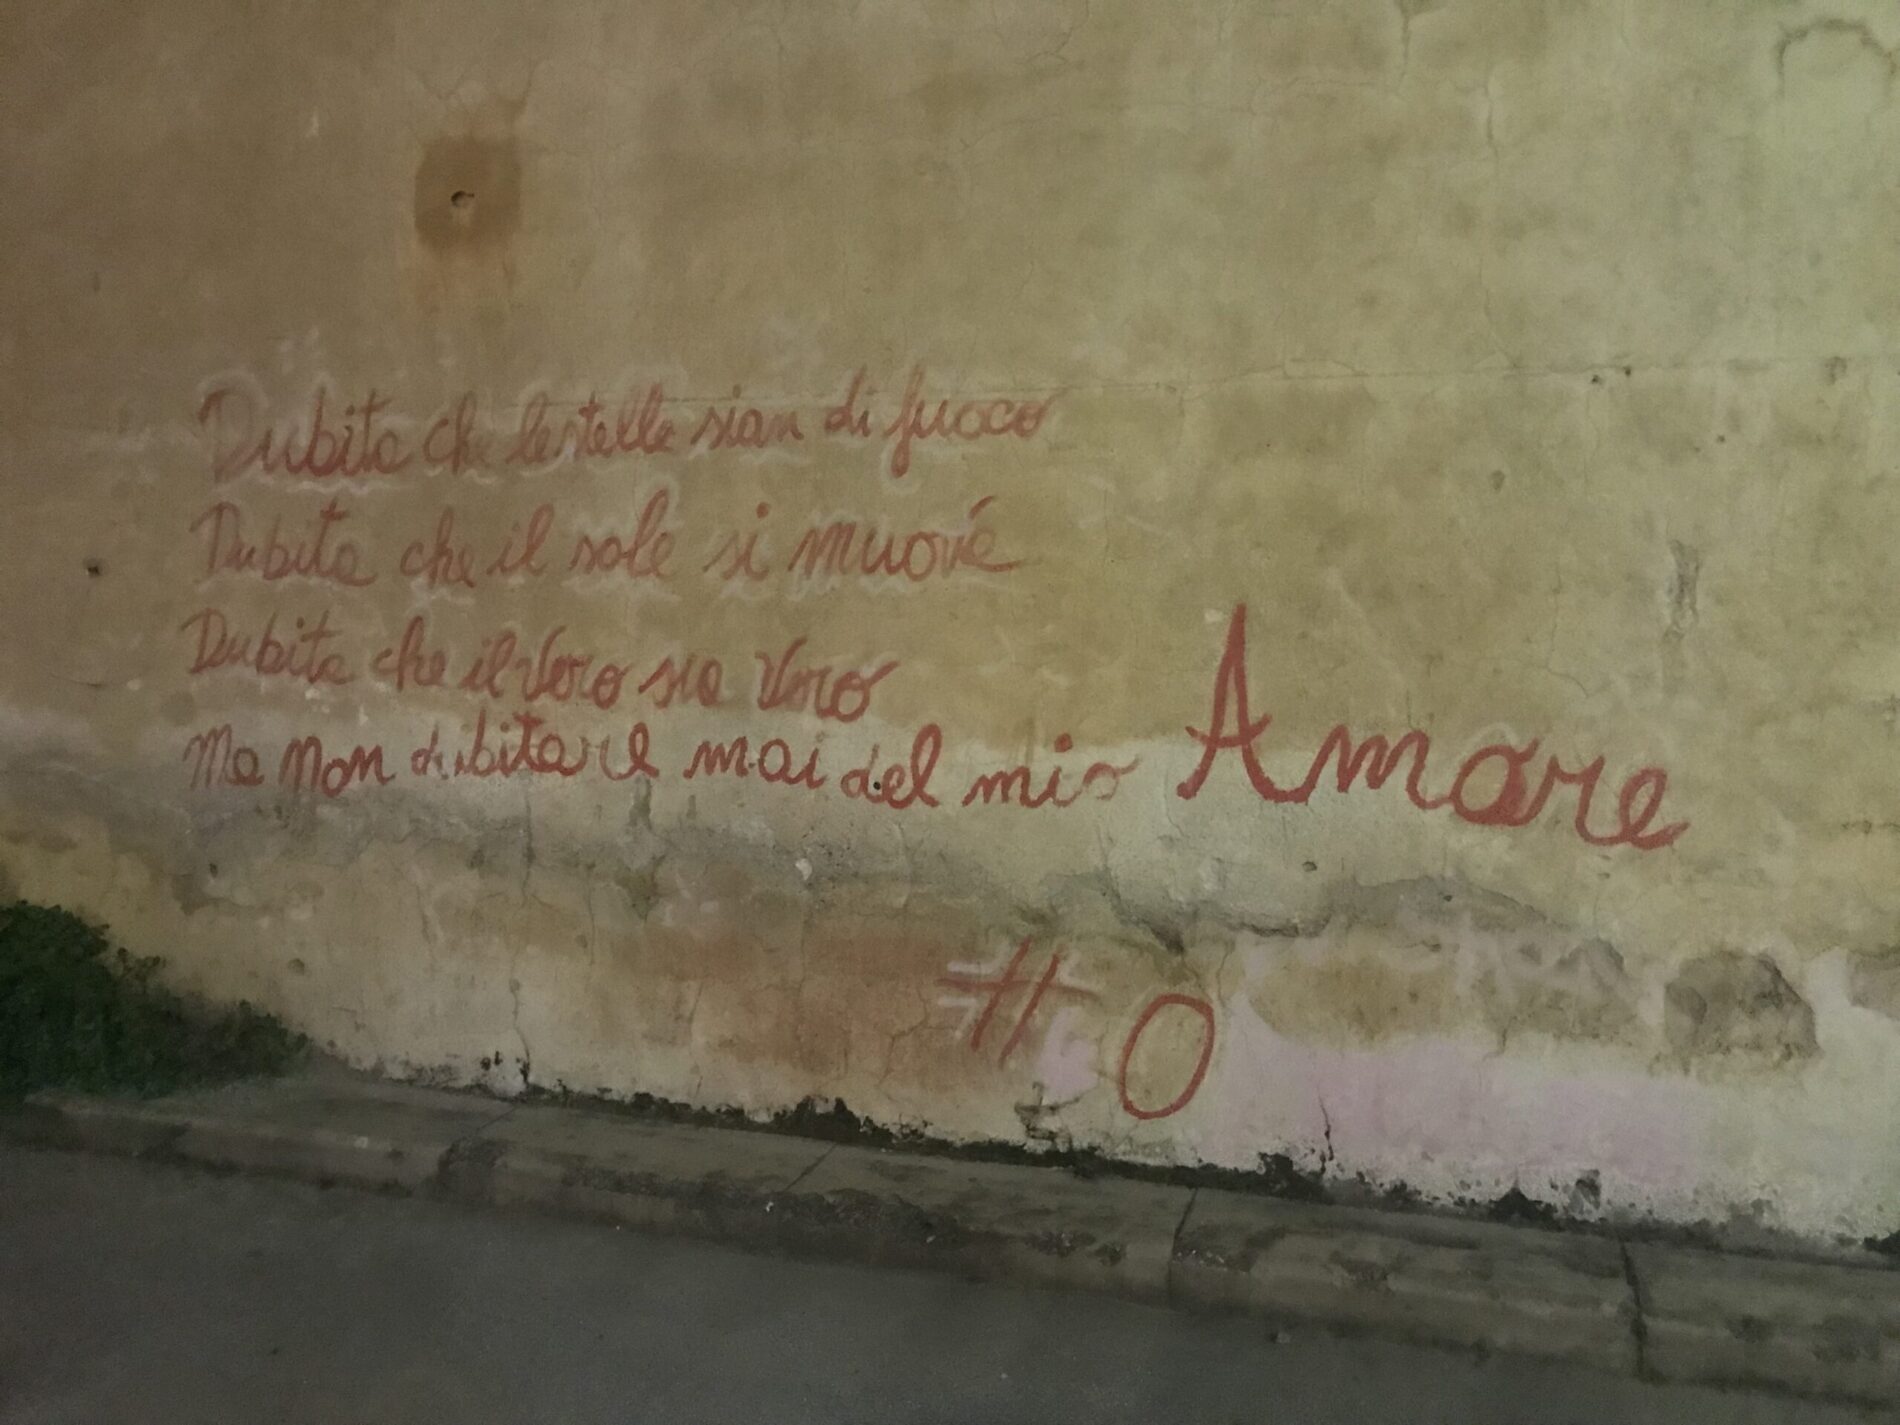 Dubita che le stelle sian di fuoco
Dubita che il sole si muove
Dubita che il Vero sia Vero
Ma non dubitare mai del mio Amore
# O